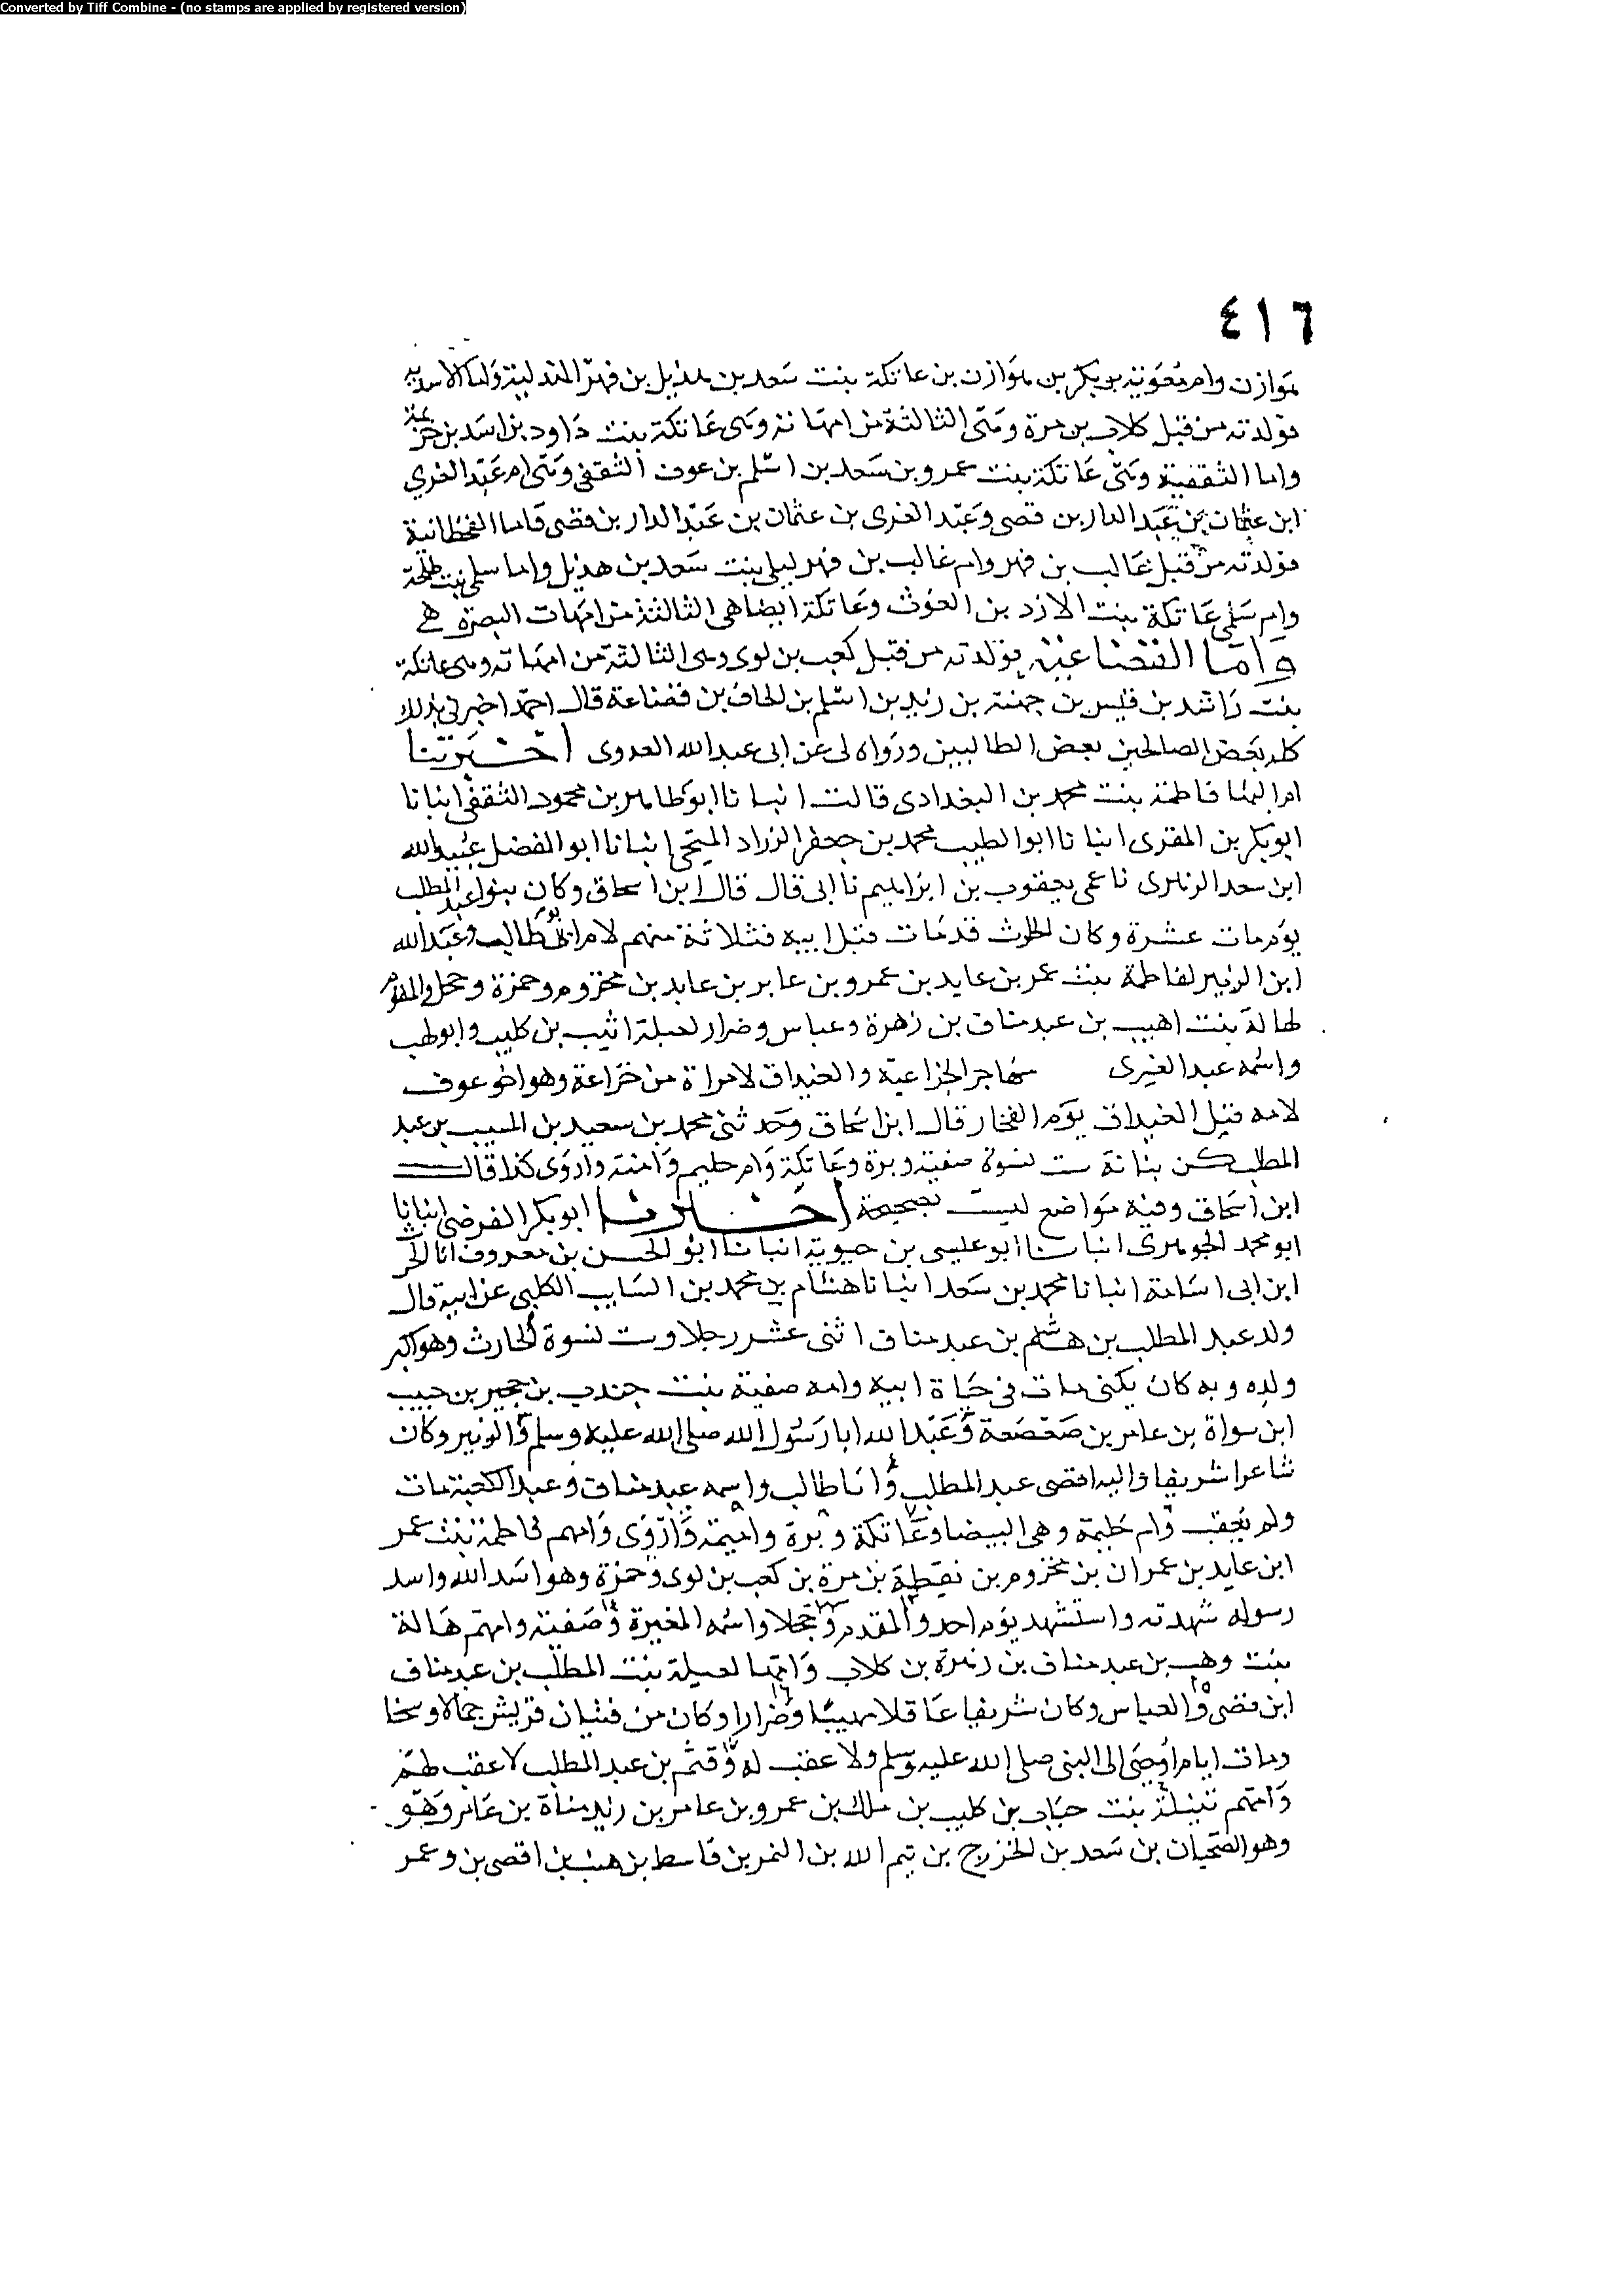 Converted by Tiff Combine - (no stamps are applied by registered version)
٤١٦
هوازن وام معوية بن بكر بن هوازن بن عاتكة بنت سعد بن هذيل بن فهر الهذلية واما الاسدية
فولدته من قبل كلاب بن مرة وهي الثالثة من امهاته وهي عاتكة بنت داود بن اسد بن خزيمة
واما الثقفية وهي عاتكة بنت عمرو بن سعد بن اسلم بن عوف الثقفي وهي ام عبد العزي
ابن عثمان بن عبد الدار بن قصي وعبد العزى بن عثمان بن عبد الدار بن قصي فاما القحطانية
فولدته من قبل غالب بن فهر وام غالب بن فهر ليلى بنت سعد بن هذيل واما سلمى بنت طلحة
وام سلمى عاتكة بنت الازد بن الغوث وعاتكة ايضا هي الثالثة من امهات النصرة هي
واما القضاعية فولدته من قبل كعب بن لوى وهي الثالثة من امهاته وهي عاتكة
بنت راشد بن قيس بن جهنة بن زيد بن اسلم بن الحاف بن قضاعة قال احمد اخبرني بذلك
كله بعض الصالحين بعض الطالبيين ورواه لى عن ابى عبد الله العدوى اخبرتنا
ام البها فاطمة بنت محمد بن البغدادى قالت انبانا ابو طاهر بن محمود الثقفي انبانا
ابو بكر بن المقرى انبانا ابو الطيب محمد بن جعفر الزراد المنبجى انبانا ابو الفضل عبيد الله
ابن سعد الزهرى نا عمى يعقوب بن ابراهيم نا ابى قال قال ابن اسحاق وكان بنوا عبد المطلب
يوم مات عشرة وكان الحارث قد مات قبل ابيه فثلاثة منهم لام ابو طالب وعبد الله
ابن الزبير لفاطمة بنت عمر بن عايد بن عمرو بن عابر بن عابد بن مخزوم وحمزة وحجل والمقوم
لهالة بنت اهيب بن عبد مناف بن زهرة وعباس وضرار لحبلة اثيب بن كليب وابو لهب
واسمه عبد العزى هاجر الخزاعية والغيداق لامراة من خزاعة وهو اخو عوف
لامه قتيل الغيداق يوم الفخار قال ابن اسحاق وحدثني محمد بن سعيد بن المسيب بن عبد
المطلب كن بناته ست نسوة صفية وبرة وعاتكة وام حليم وامنة واروى كذا قال
ابن اسحاق وفيه مواضع ليست بصحيحة اخبرنا ابو بكر الفرضي انبانا
ابو محمد الجوهرى انبانا ابو عليسى بن حيوية انبانا ابو الحسن بن معروف انا الحرث
ابن ابى اسامة انبانا محمد بن سعد انبانا هشام بن محمد بن السايب الكلبى عن ابيه قال
ولد عبد المطلب بن هشلم بن عبد مناف اثنى عشر رجلا وست نسوة الحارث وهو اكبر
ولده وبه كان يكنى مات في حياة ابيه وامه صفية بنت جندب بن حجير بن حبيب
ابن سواة بن عامر بن صعصعة وعبد الله ابا رسول الله صلى الله عليه وسلم والزبير وكان
شاعرا شريفا واليه اقصى عبد المطلب وانا طالب واسمه عبد مناف وعبد الكعبة مات
ولم يعقب وام حليمة وهي البيضا وعاتكة وبرة واميمة واروى وامهم فاطمة بنت عمر
ابن عايد بن عمران بن مخزوم بن نقيطة بن مرة بن كعب بن لوى وحمزة وهو اسد الله واسد
رسوله شهدته واستشهد يوم احد والمقدم وحجلا واسمه المغيرة وصفية وامهم هالة
بنت وهب بن عبد مناف بن زهرة بن كلاب وامها لعيلة بنت المطلب بن عبد مناف
ابن قضى والعباس وكان شريفا عاقلا مهيبا وضرارا وكان من فتيان قريش جمالا وسخا
ومات ايام اوصى الى النبى صلى الله عليه وسلم ولا عقب له وقثم بن عبد المطلب لا عقب لهم
وامهم نتيلة بنت حباب بن كليب بن ملك بن عمرو بن عامر بن زيد مناة بن عامر وهو
وهو الضحيان بن سعد بن الخزرج بن تيم الله بن النمر بن قاسط بن هنب بن اقصى بن وعمر